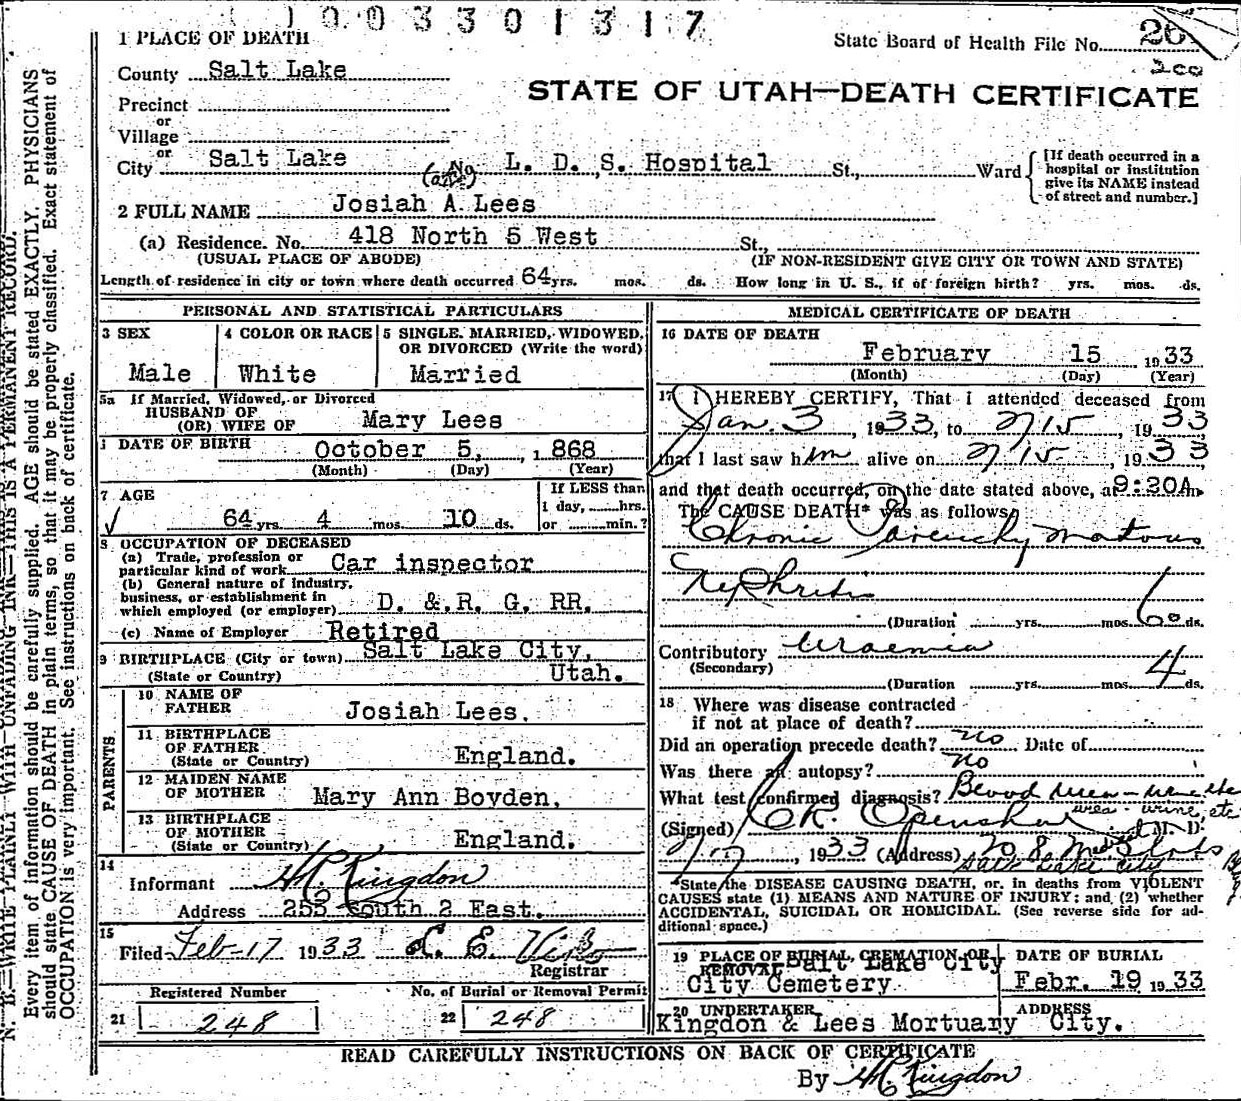 1003301317
1 PLACE OF DEATH
State Board of Health File No. 26
200
County Salt Lake
STATE OF UTAH—DEATH CERTIFICATE
Precinct
or
Village
or
City Salt Lake No. L. D. S. Hospital St., Ward
[If death occurred in a
hospital or institution
give its NAME instead
of street and number.]
2 FULL NAME Josiah A. Lees
(a) Residence. No. 418 North 5 West St.,
(USUAL PLACE OF ABODE) (IF NON-RESIDENT GIVE CITY OR TOWN AND STATE)
Length of residence in city or town where death occurred 64 yrs. mos. ds. How long in U. S., if of foreign birth? yrs. mos. ds.
PERSONAL AND STATISTICAL PARTICULARS
3 SEX
Male
4 COLOR OR RACE
White
5 SINGLE, MARRIED, WIDOWED,
OR DIVORCED (Write the word)
Married
5a If Married, Widowed, or Divorced
HUSBAND OF
(OR) WIFE OF Mary Lees
DATE OF BIRTH October 5, 1868
(Month) (Day) (Year)
7 AGE
64 yrs. 4 mos. 10 ds.
If LESS than
1 day, hrs.
or min.?
8 OCCUPATION OF DECEASED
(a) Trade, profession or
particular kind of work Car inspector
(b) General nature of industry,
business, or establishment in
which employed (or employer) D. & R. G. RR.
(c) Name of Employer Retired
9 BIRTHPLACE (City or town) Salt Lake City,
(State or Country) Utah.
PARENTS
10 NAME OF
FATHER Josiah Lees.
11 BIRTHPLACE
OF FATHER
(State or Country) England.
12 MAIDEN NAME
OF MOTHER Mary Ann Boyden.
13 BIRTHPLACE
OF MOTHER
(State or Country) England.
14
Informant H C Kingdon
Address 255 South 2 East.
15
Filed Feb-17 1933 L. E.
Registrar
Registered Number
21 248
No. of Burial or Removal Permit
22 248
MEDICAL CERTIFICATE OF DEATH
16 DATE OF DEATH
February 15 1933
(Month) (Day) (Year)
17 I HEREBY CERTIFY, That I attended deceased from
Jan. 3, 1933, to 2/15, 1933
that I last saw him alive on 2/15, 1933
and that death occurred, on the date stated above, at 9:20A m.
The CAUSE DEATH* was as follows:
Chronic Parenchymatous
Nephritis
(Duration yrs. mos. 60 ds.
Contributory Uraemia
(Secondary)
(Duration yrs. mos. 4 ds.
18 Where was disease contracted
if not at place of death?
Did an operation precede death? no Date of
Was there an autopsy? no
What test confirmed diagnosis? Blood urea - urine etc
urea - urine, etc
(Signed) C R. Openshaw M. D.
2/17, 1933 (Address) 708 Med
Salt Lake City
*State the DISEASE CAUSING DEATH, or, in deaths from VIOLENT
CAUSES state (1) MEANS AND NATURE OF INJURY; and (2) whether
ACCIDENTAL, SUICIDAL OR HOMICIDAL. (See reverse side for ad-
ditional space.)
19 PLACE OF BURIAL, CREMATION OR
REMOVAL Salt Lake City
City Cemetery
DATE OF BURIAL
Febr. 19 1933
20 UNDERTAKER ADDRESS
Kingdon & Lees Mortuary City.
READ CAREFULLY INSTRUCTIONS ON BACK OF CERTIFICATE
By H C Kingdon
N. B.—WRITE PLAINLY WITH UNFADING INK—THIS IS A PERMANENT RECORD.
Every item of information should be carefully supplied. AGE should be stated EXACTLY. PHYSICIANS
should state CAUSE OF DEATH in plain terms, so that it may be properly classified. Exact statement of
OCCUPATION is very important. See instructions on back of certificate.